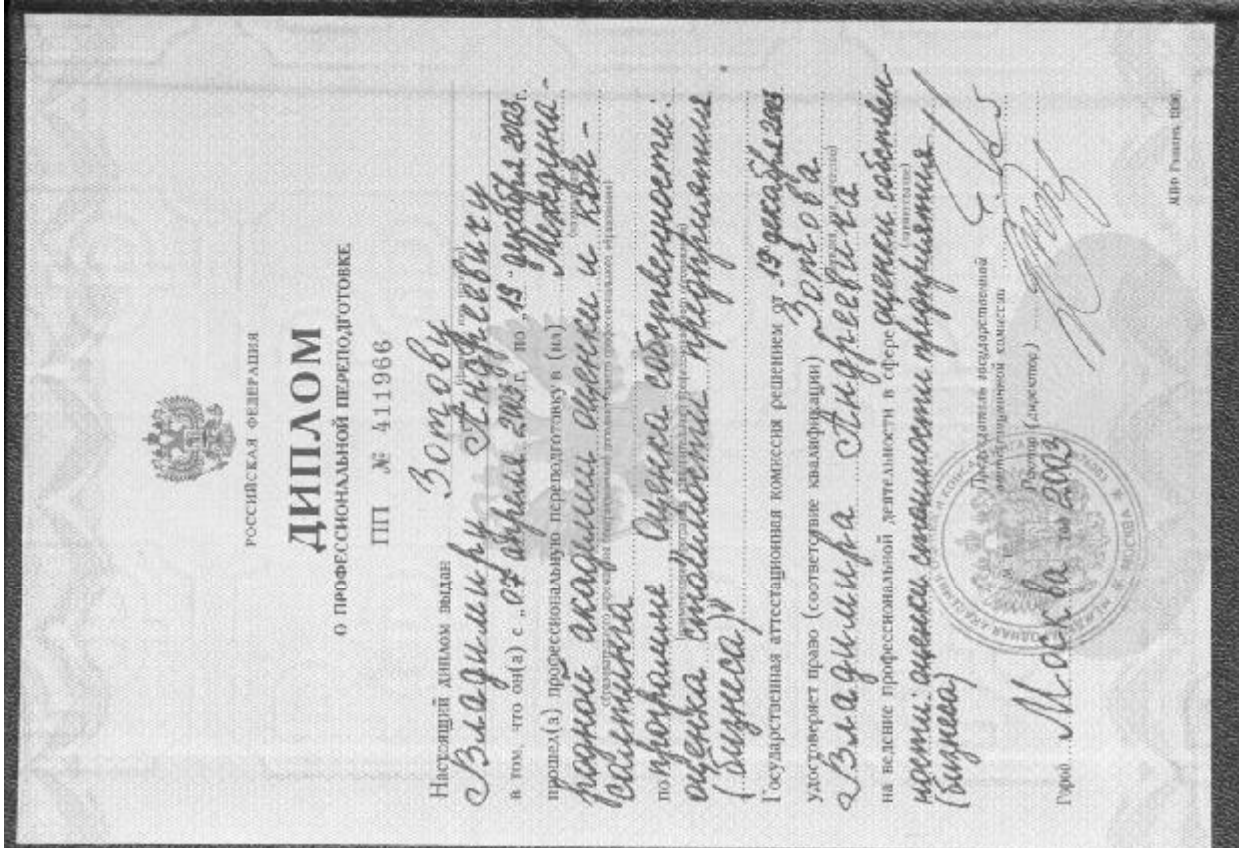 РОССИЙСКАЯ ФЕДЕРАЦИЯ
ДИПЛОМ
О ПРОФЕССИОНАЛЬНОЙ ПЕРЕПОДГОТОВКЕ
ПП № 411966
Настоящий диплом выдан Зотову
Владимиру Андреевичу
в том, что он(а) с „07" апреля 2003 г. по „19" декабря 2003 г.
прошел(а) профессиональную переподготовку в (на) Междуна-
родной академии оценки и кон-
салтинга
(образовательного учреждения (подразделения) дополнительного профессионального образования)
по программе Оценка собственности:
оценка стоимости предприятия
(бизнеса)
Государственная аттестационная комиссия решением от „19" декабря 2003
удостоверяет право (соответствие квалификации) Зотова
Владимира Андреевича
на ведение профессиональной деятельности в сфере оценки собствен-
ности: оценки стоимости предприятия
(бизнеса)
Председатель государственной
аттестационной комиссии
Ректор (директор)
Город Москва год 2003
МОСКВА